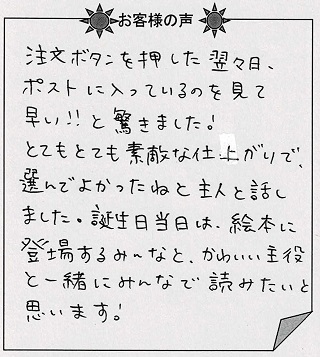 お客様の声
注文ボタンを押した翌々日、
ポストに入っているのを見て
早い!!と驚きました!
とてもとても素敵な仕上がりで、
選んでよかったねと主人と話し
ました。誕生日当日は、絵本に
登場するみーんなと、かわいい主役
と一緒にみんなで読みたいと
思います!